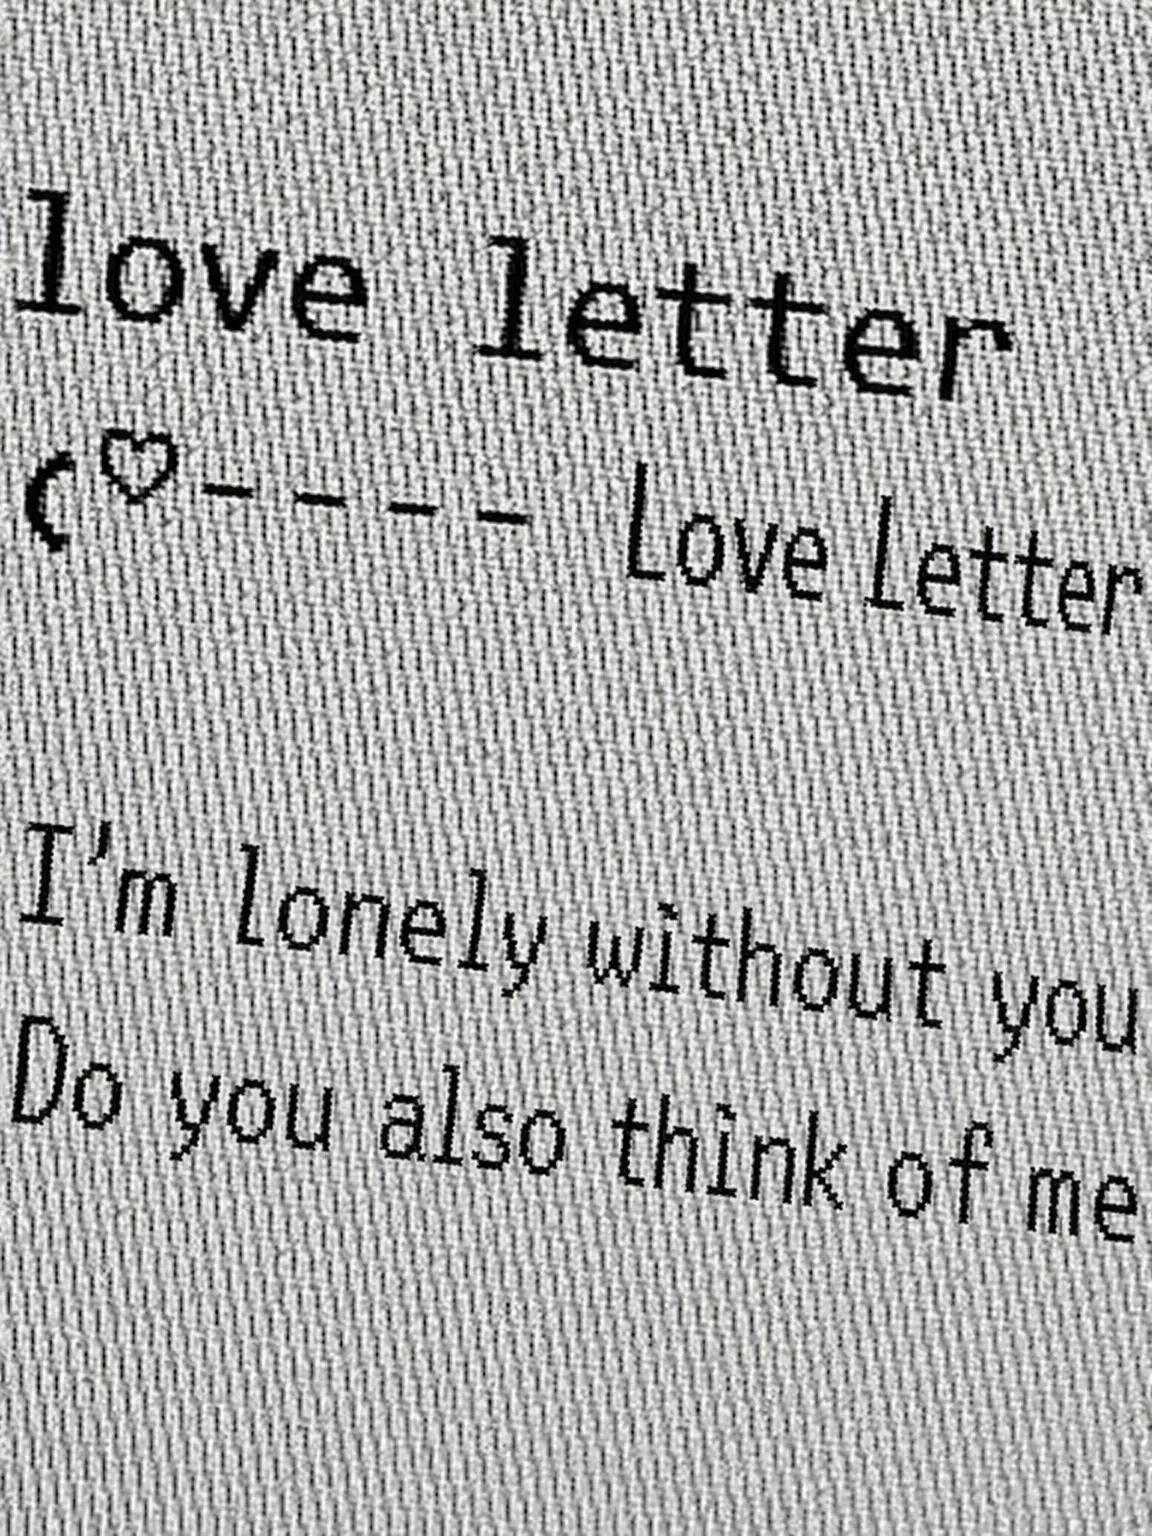 love letter
(♡---- Love Letter
I'm lonely without you
Do you also think of me